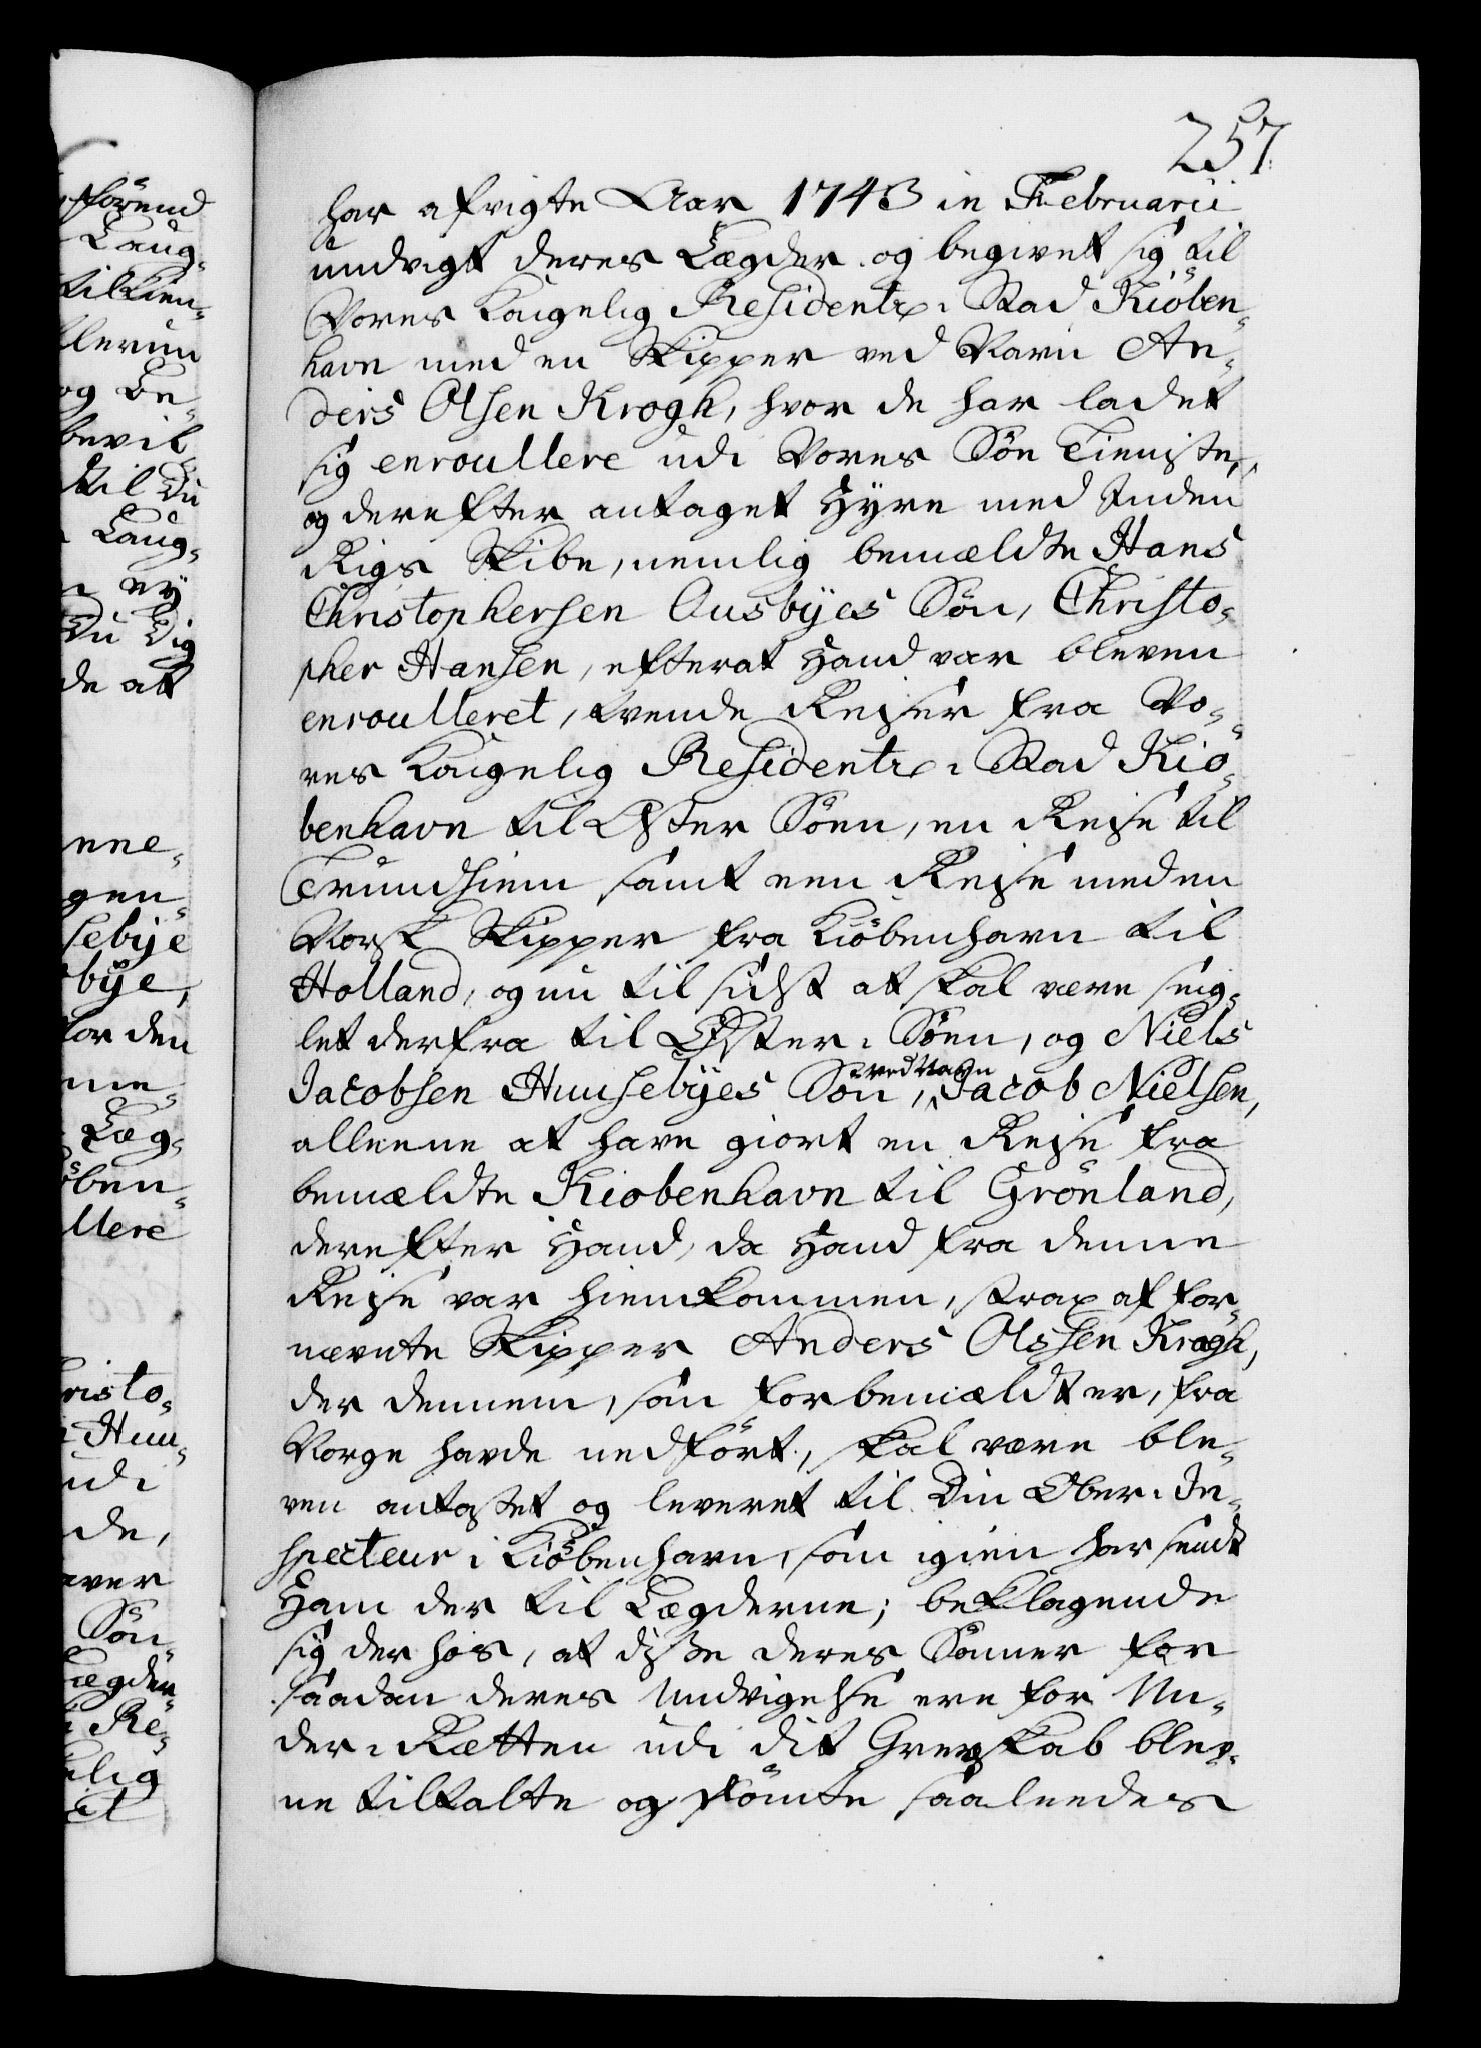 257.
har afvigte Aar 1743 in Februarii
undvigt deres Lægder og begivet sig til
Vores Kongelig Residentz-Stad Kiöben-
havn med en Skipper ved Navn An-
ders Olsen Krogh, hvor de har ladet
sig enroullere udi Vores Söe Tieniste,
og derefter antaget Hyre med Inden
Rigs Skibe, nemlig bemældte Hans
Christophersen Ousbyes Sön, Christo-
pher Hansen, efterat Hand var bleven
enroulleret, tvende Reiser fra Vo-
res Kongelig Residentz-Stad Kiö-
benhavn til Öster Söen, en Reise til
Trundhiem samt een Reise med en
Norsk Skipper fra Kiöbenhavn til
Holland, og nu til sidst at skal være seig-
let derfra til Öster-Söen, og Niels
Jacobsen Huusebyes Sön, ved Navn Jacob Nielsen,
alleene at have giort en Reise fra
bemældte Kiöbenhavn til Grönland,
derefter Hand, da Hand fra denne
Reise var hiemkommen, strax af for-
nævnte Skipper Anders Olssen Krogh,
der dennem, som forbemældt er, fra
Norge havde nedfört, skal være ble-
ven antastet og leveret til Din Ober-In-
specteur i Kiöbenhavn, som igien har sendt
Ham der til Lægderne; beklagende
sig der hos, at disse deres Sönner for
saadan deres Undvigelse ere for Un-
der-Rætten udi dit Grevskab blev-
ne tiltalte og dömte saaleedes
förend
Laug-
tilkien-
og be-
bevil
til Du
Laug-
ey
Du Dig
de at
nne-
gen-
sebye
bye,
for den
me-
Læg-
öben-
llere
risto-
Huu-
udi
de,
aver
Sön-
Lægder-
Re-
elig
et